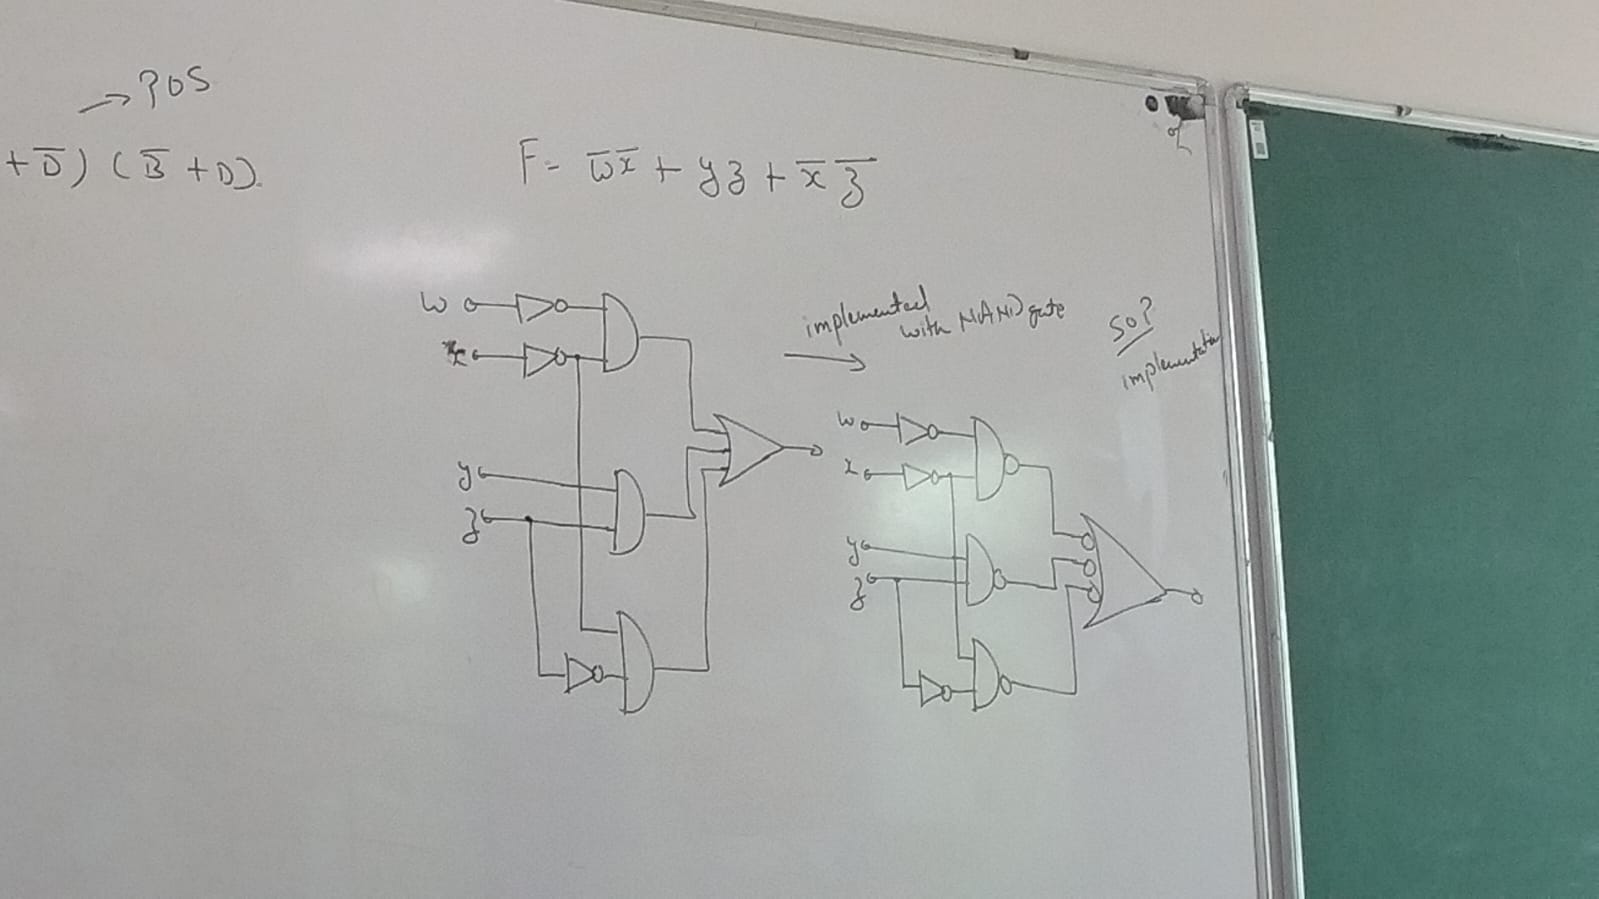 → POS
+ D̅) (B̅ + D).
F = w̅x̅ + yz + x̅ z̅
w
x
y
z
implemented
with NAND gate
→
SOP
implementation
w
x
y
z